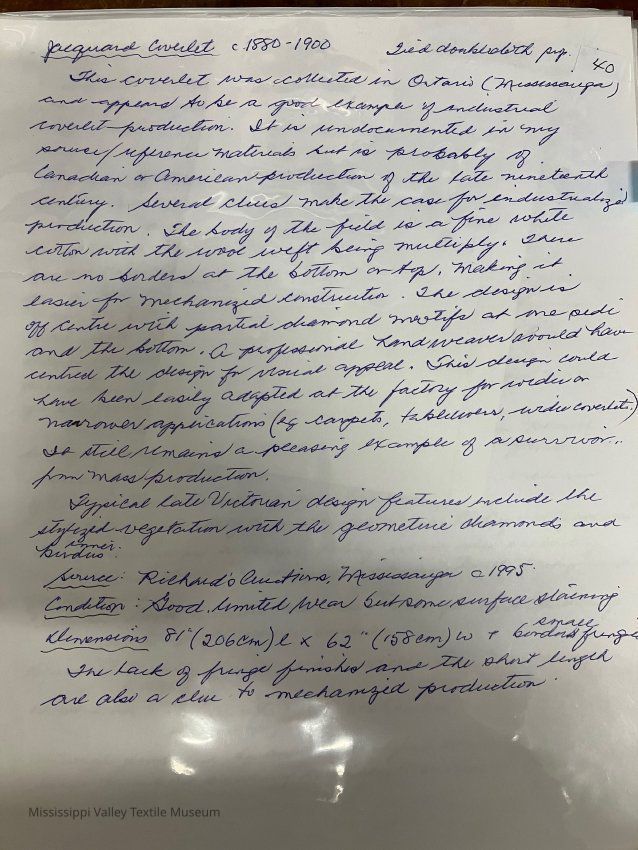 Jacquard Coverlet c 1880-1900 Tied doublecloth prp. 40
This coverlet was collected in Ontario (Mississauga)
and appears to be a good example of industrial
coverlet production. It is undocumented in my
source/reference materials but is probably of
Canadian or American production of the late nineteenth
century. Several clues make the case for industrialized
production. The body of the field is a fine white
cotton with the wool weft being multiply. There
are no borders at the bottom or top, making it
easier for mechanized construction. The design is
off centre with partial diamond motifs at one side
and the bottom. A professional handweaver would have
centred the design for visual appeal. This design could
have been easily adapted at the factory for wider or
narrower applications (eg carpets, tablecovers, wider coverlets.)
It still remains a pleasing example of a survivor..
from mass production.
Typical late Victorian design features include the
stylized vegetation with the geometric diamonds and
inner
birds.
Source: Richard's Auctions, Mississauga c 1995.
Condition: Good, limited wear but some surface staining
small
Dimensions 81" (206cm) l x 62" (158cm) w + borders fringes
The lack of fringe finishes and the short length
are also a clue to mechanized production.
Mississippi Valley Textile Museum